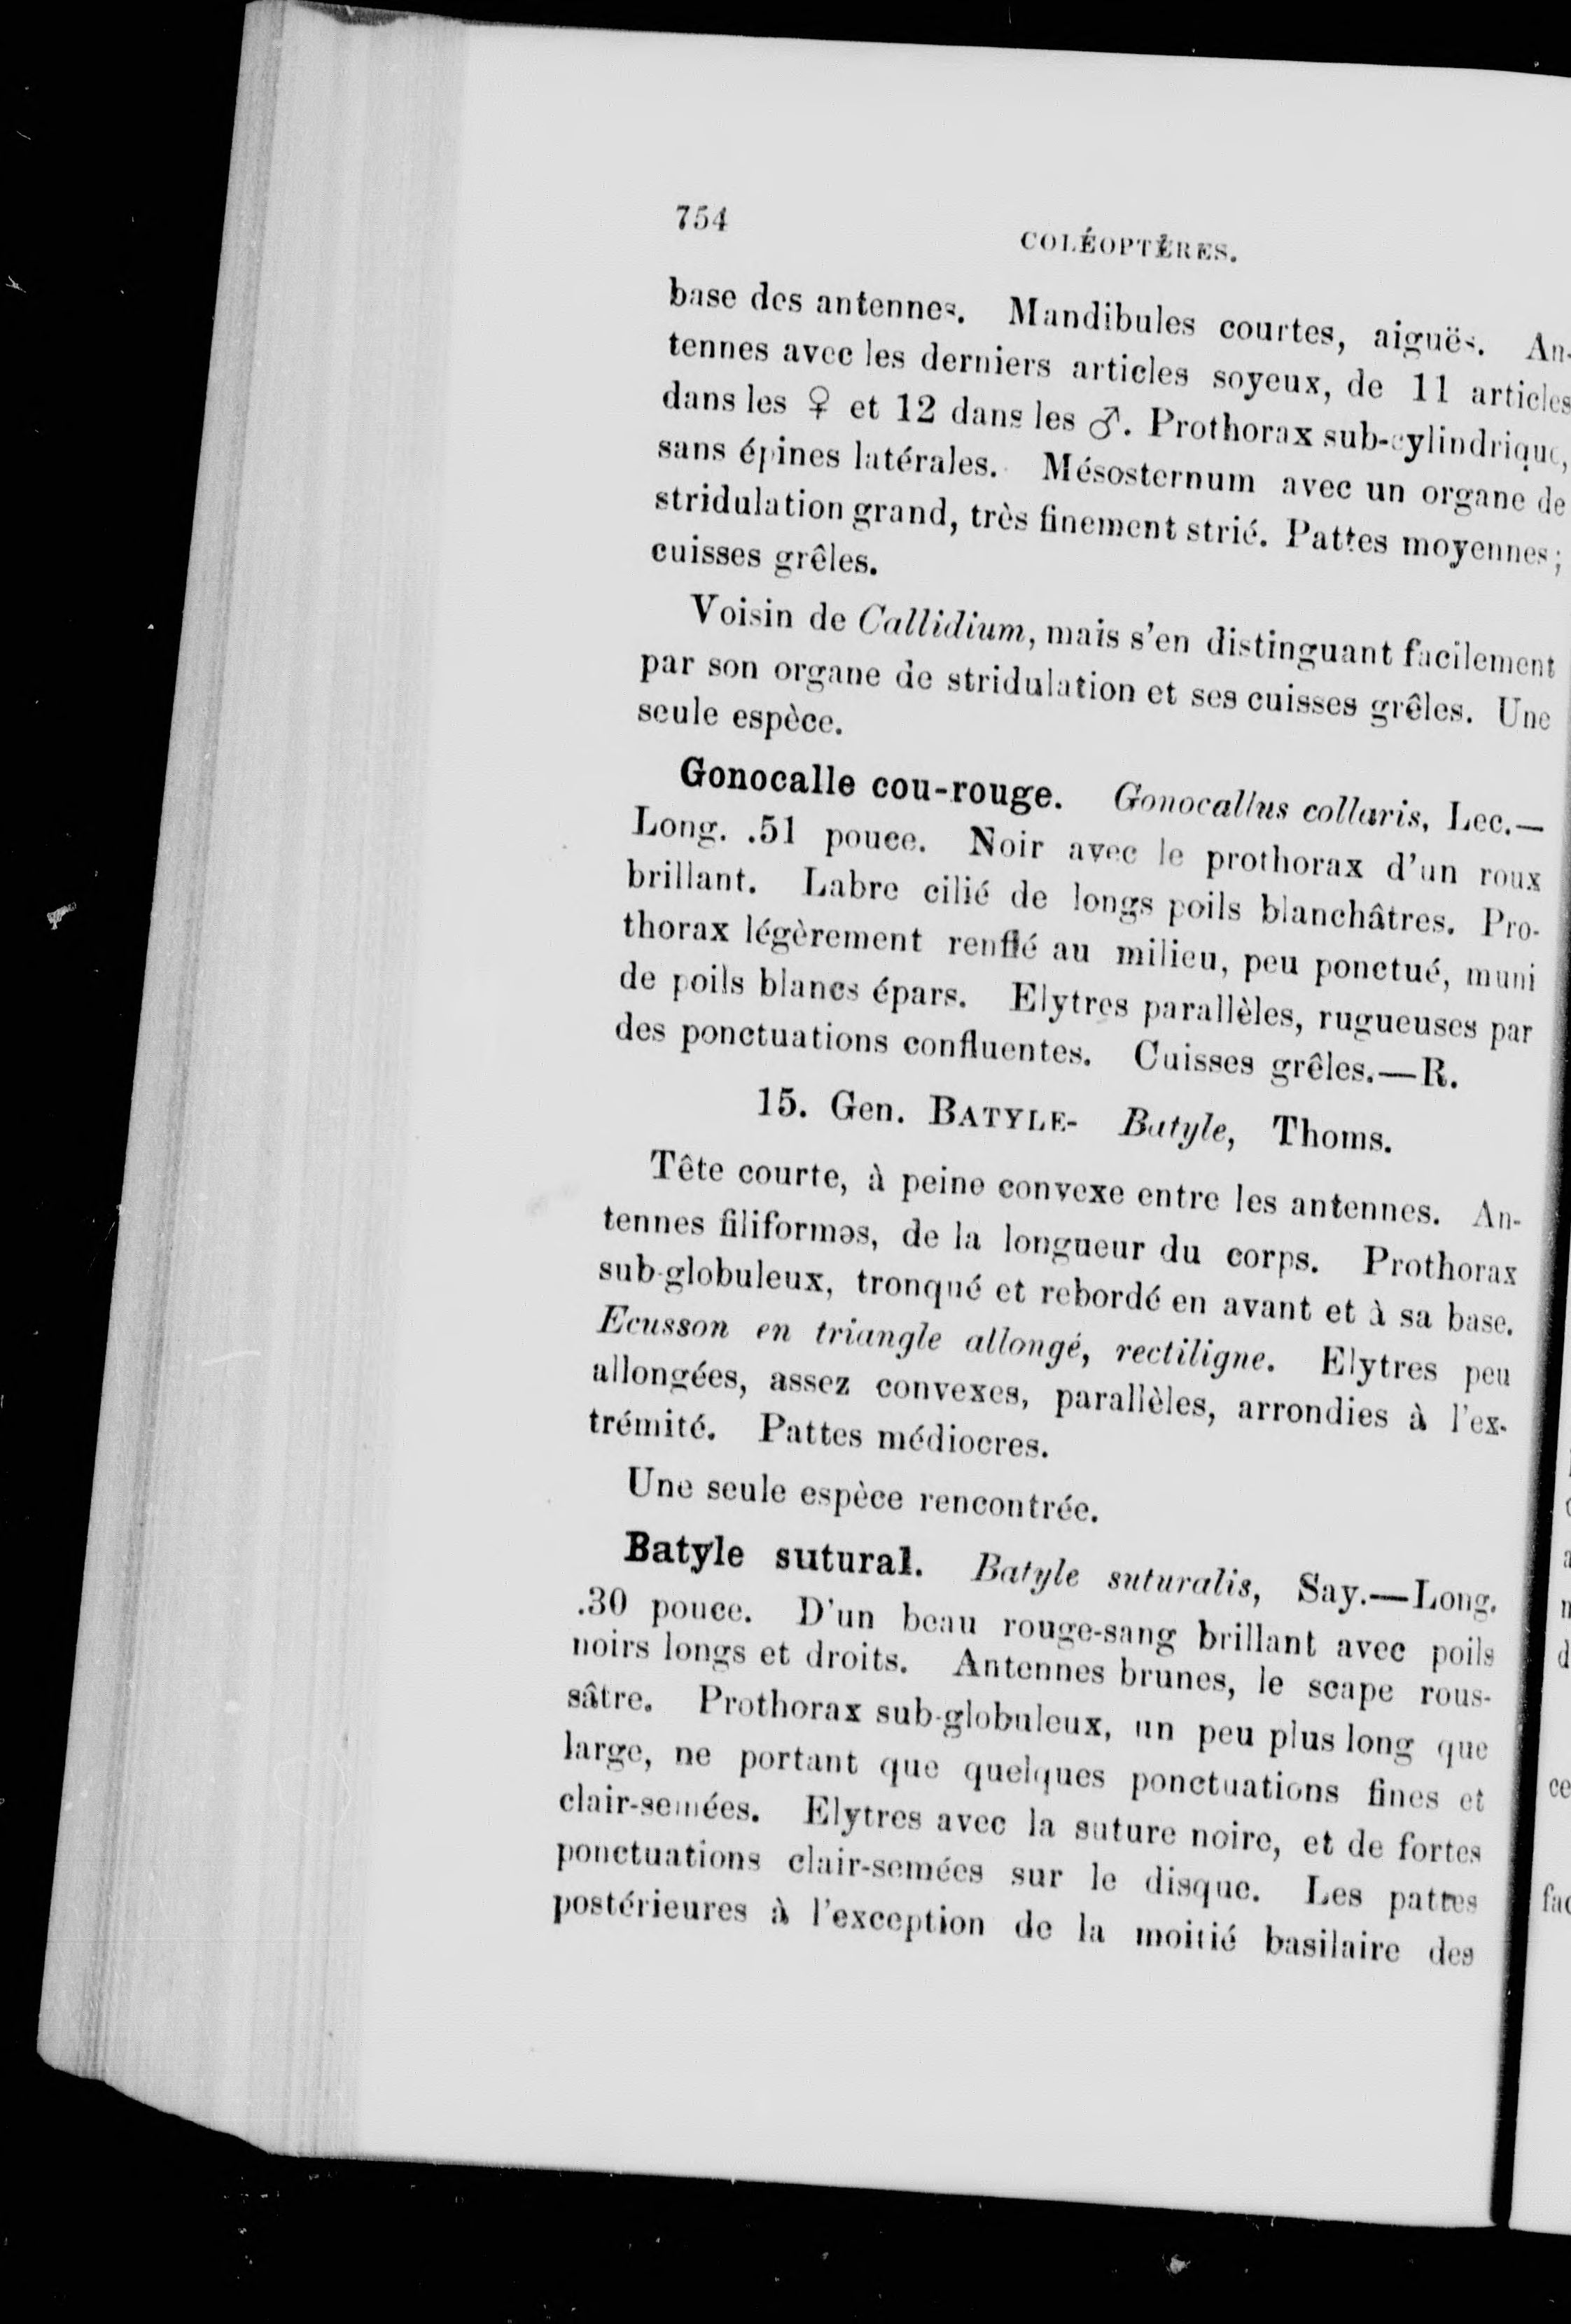 754
COLÉOPTÈRES.
base des antennes. Mandibules courtes, aiguës. An-
tennes avec les derniers articles soyeux, de 11 articles
dans les ♀ et 12 dans les ♂. Prothorax sub-cylindrique,
sans épines latérales. Mésosternum avec un organe de
stridulation grand, très finement strié. Pattes moyennes;
cuisses grêles.
Voisin de Callidium, mais s'en distinguant facilement
par son organe de stridulation et ses cuisses grêles. Une
seule espèce.
Gonocalle cou-rouge. Gonocallus collaris, Lec.—
Long. .51 pouce. Noir avec le prothorax d'un roux
brillant. Labre cilié de longs poils blanchâtres. Pro-
thorax légèrement renflé au milieu, peu ponctué, muni
de poils blancs épars. Elytres parallèles, rugueuses par
des ponctuations confluentes. Cuisses grêles.—R.
15. Gen. BATYLE- Batyle, Thoms.
Tête courte, à peine convexe entre les antennes. An-
tennes filiformes, de la longueur du corps. Prothorax
sub-globuleux, tronqué et rebordé en avant et à sa base.
Ecusson en triangle allongé, rectiligne. Elytres peu
allongées, assez convexes, parallèles, arrondies à l'ex-
trémité. Pattes médiocres.
Une seule espèce rencontrée.
Batyle sutural. Batyle suturalis, Say.—Long.
.30 pouce. D'un beau rouge-sang brillant avec poils
noirs longs et droits. Antennes brunes, le scape rous-
sâtre. Prothorax sub-globuleux, un peu plus long que
large, ne portant que quelques ponctuations fines et
clair-semées. Elytres avec la suture noire, et de fortes
ponctuations clair-semées sur le disque. Les pattes
postérieures à l'exception de la moitié basilaire des